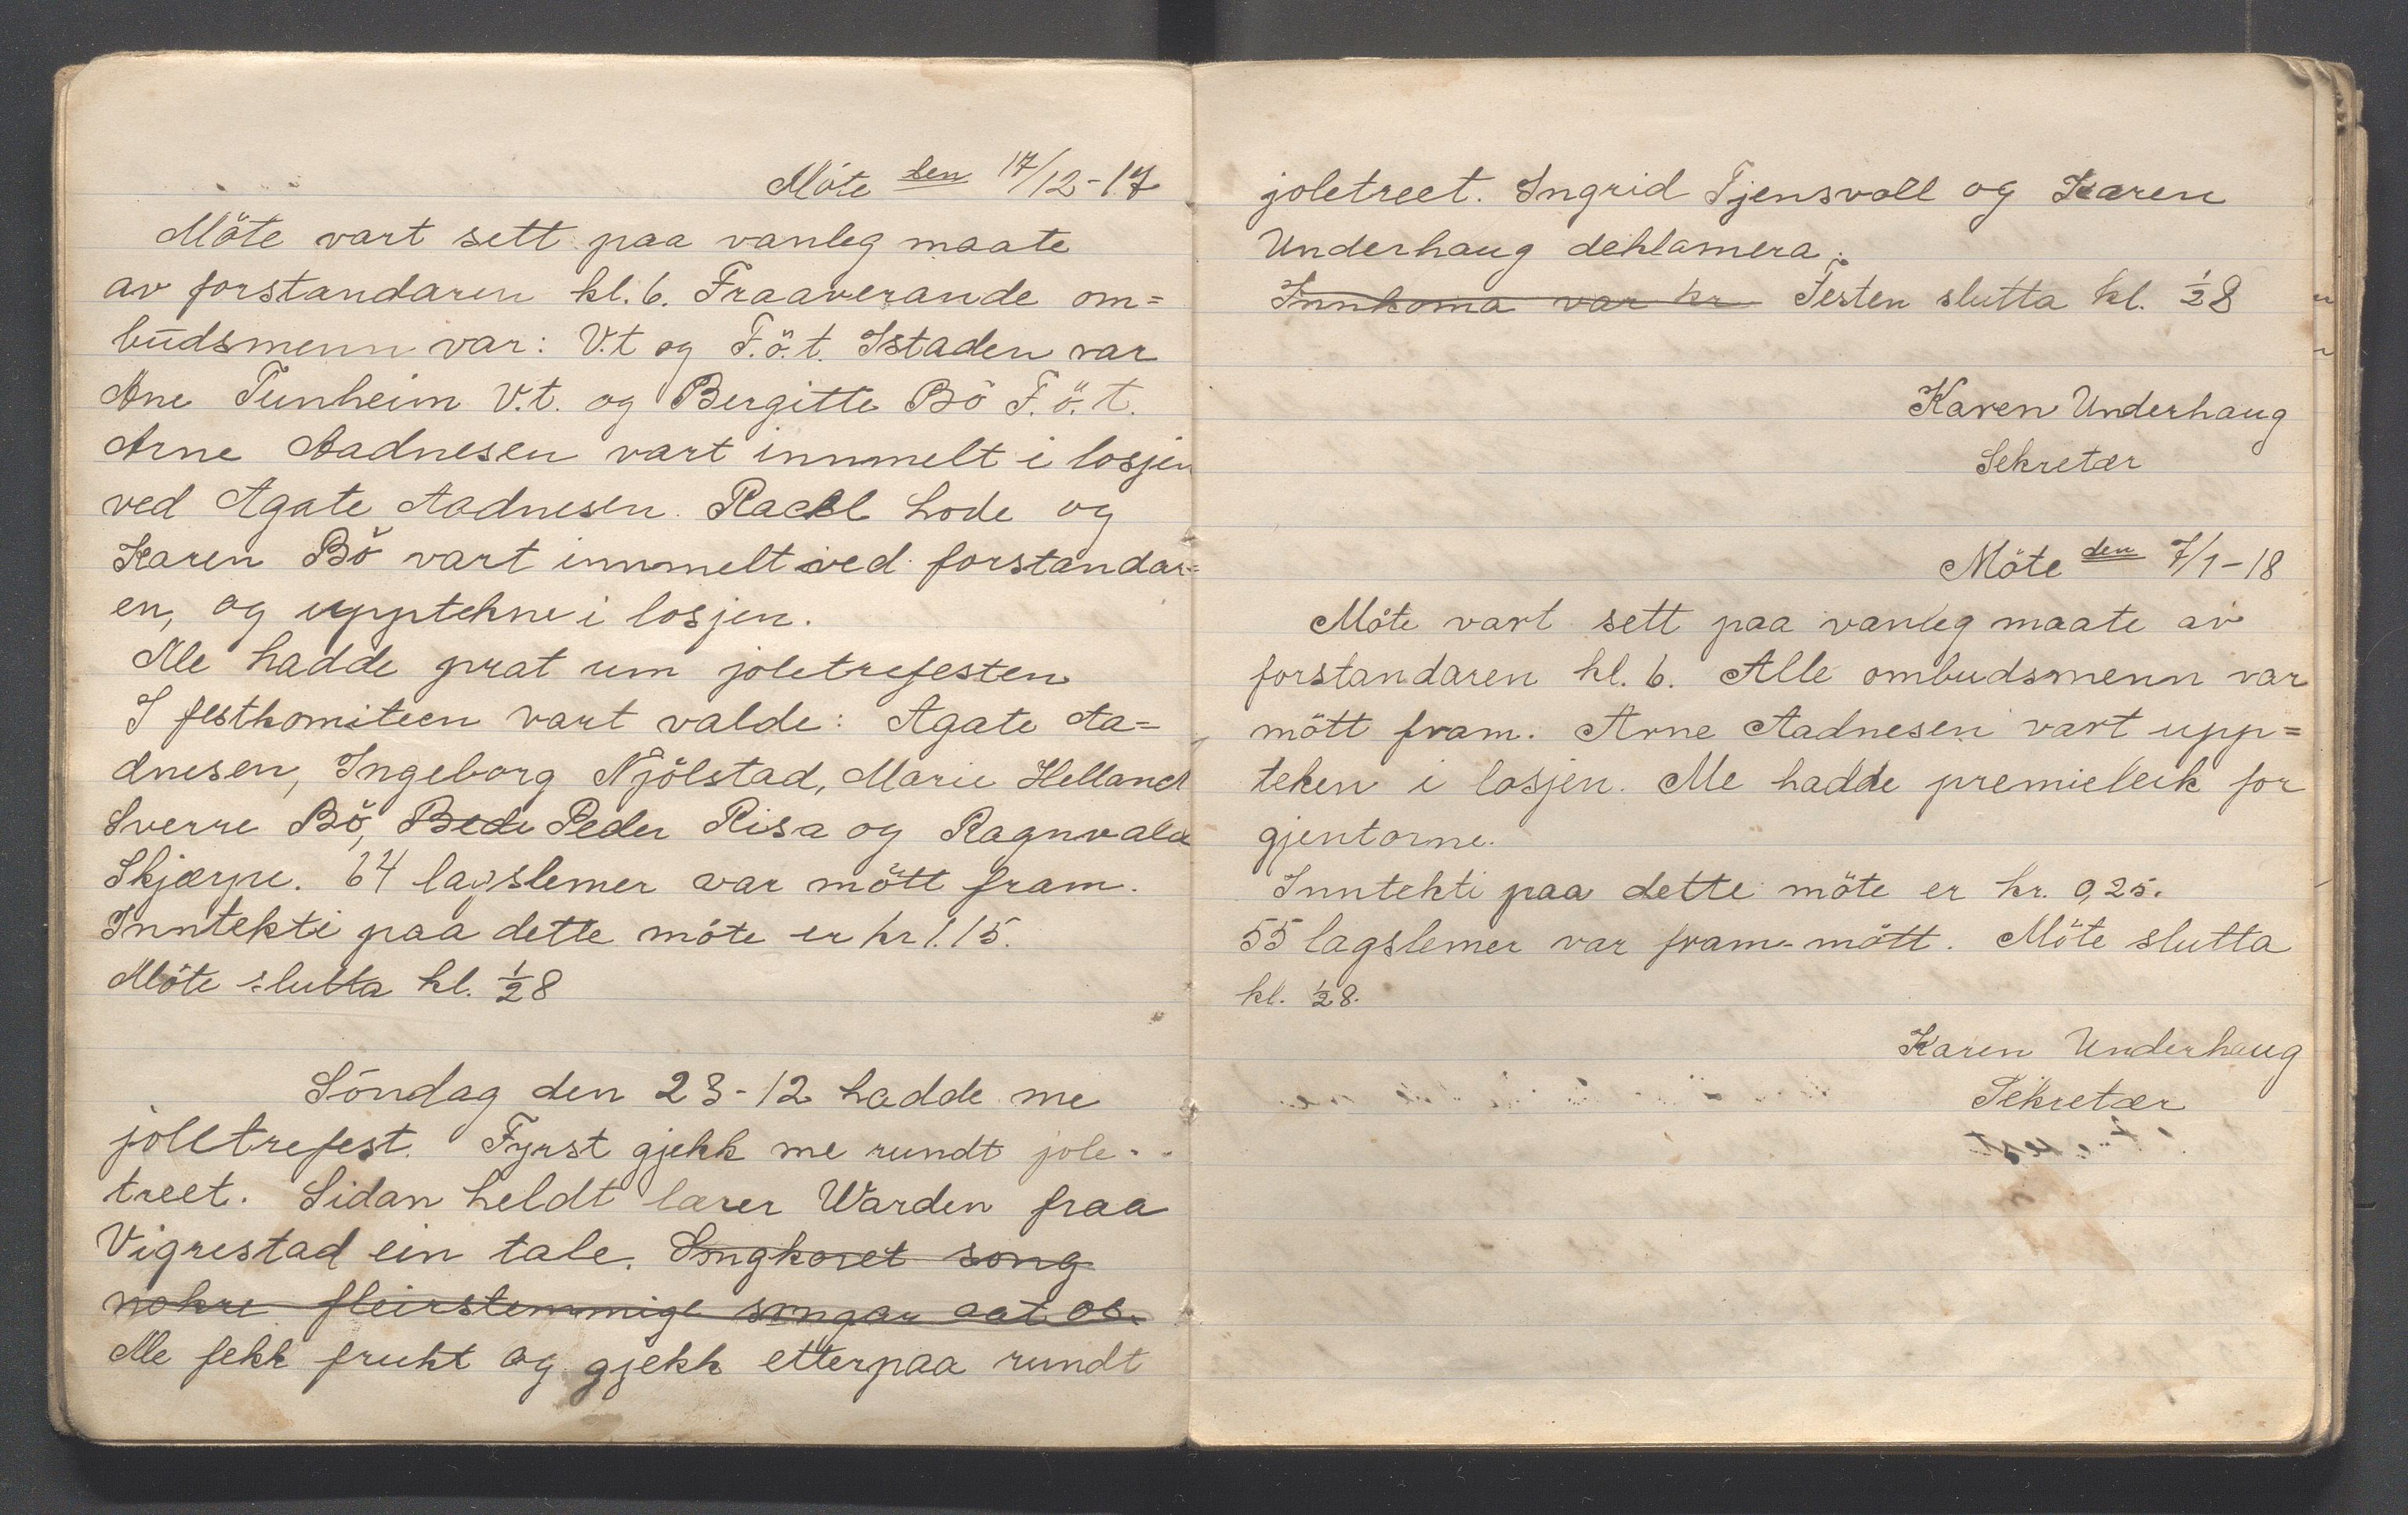 Möte den 17/12-17
Möte vart sett paa vanleg maate
av forstandaren kl. 6. Fraaverande om=
budsmenn var: V.t og F.ö.t. Istaden var
Ane Tunheim V.t. og Bergitte Bö F.ö.t.
Arne Aadnesen vart innmelt i losjen
ved Agate Aadnesen. Rackl Lode og
Karen Bö vart innmelt ved forstandar=
en, og upptekne i losjen.
Me hadde prat um joletrefesten
I festkomiteen vart valde: Agate Aa=
dnesen, Ingeborg Njölstad, Marie Helland
Sverre Bö, Bede Peder Risa og Ragnvald
Skjærpe. 64 lagslemer var mött fram.
Inntekti paa dette möte er kr 1.15.
Möte slutta kl. ½8
Söndag den 23-12 hadde me
joletrefest. Fyrst gjekk me rundt jole-
treet. Sidan heldt lærer Warden fraa
Vigrestad ein tale. Songkoret song
nokre fleirstemmige songar aat os.
Me fekk frukt og gjekk etterpaa rundt
joletreet. Ingrid Tjensvoll og Karen
Underhaug deklamera.
Innkoma var kr Festen slutta kl. ½8
Karen Underhaug
Sekretær
Möte den 7/1-18
Möte vart sett paa vanleg maate av
forstandaren kl. 6. Alle ombudsmenn var
mött fram. Arne Aadnesen vart upp=
teken i losjen. Me hadde premieleik for
gjentorne.
Inntekti paa dette möte er kr. 0,25.
55 lagslemer var fram-mött. Möte slutta
kl. ½8.
Karen Underhaug
Sekretær